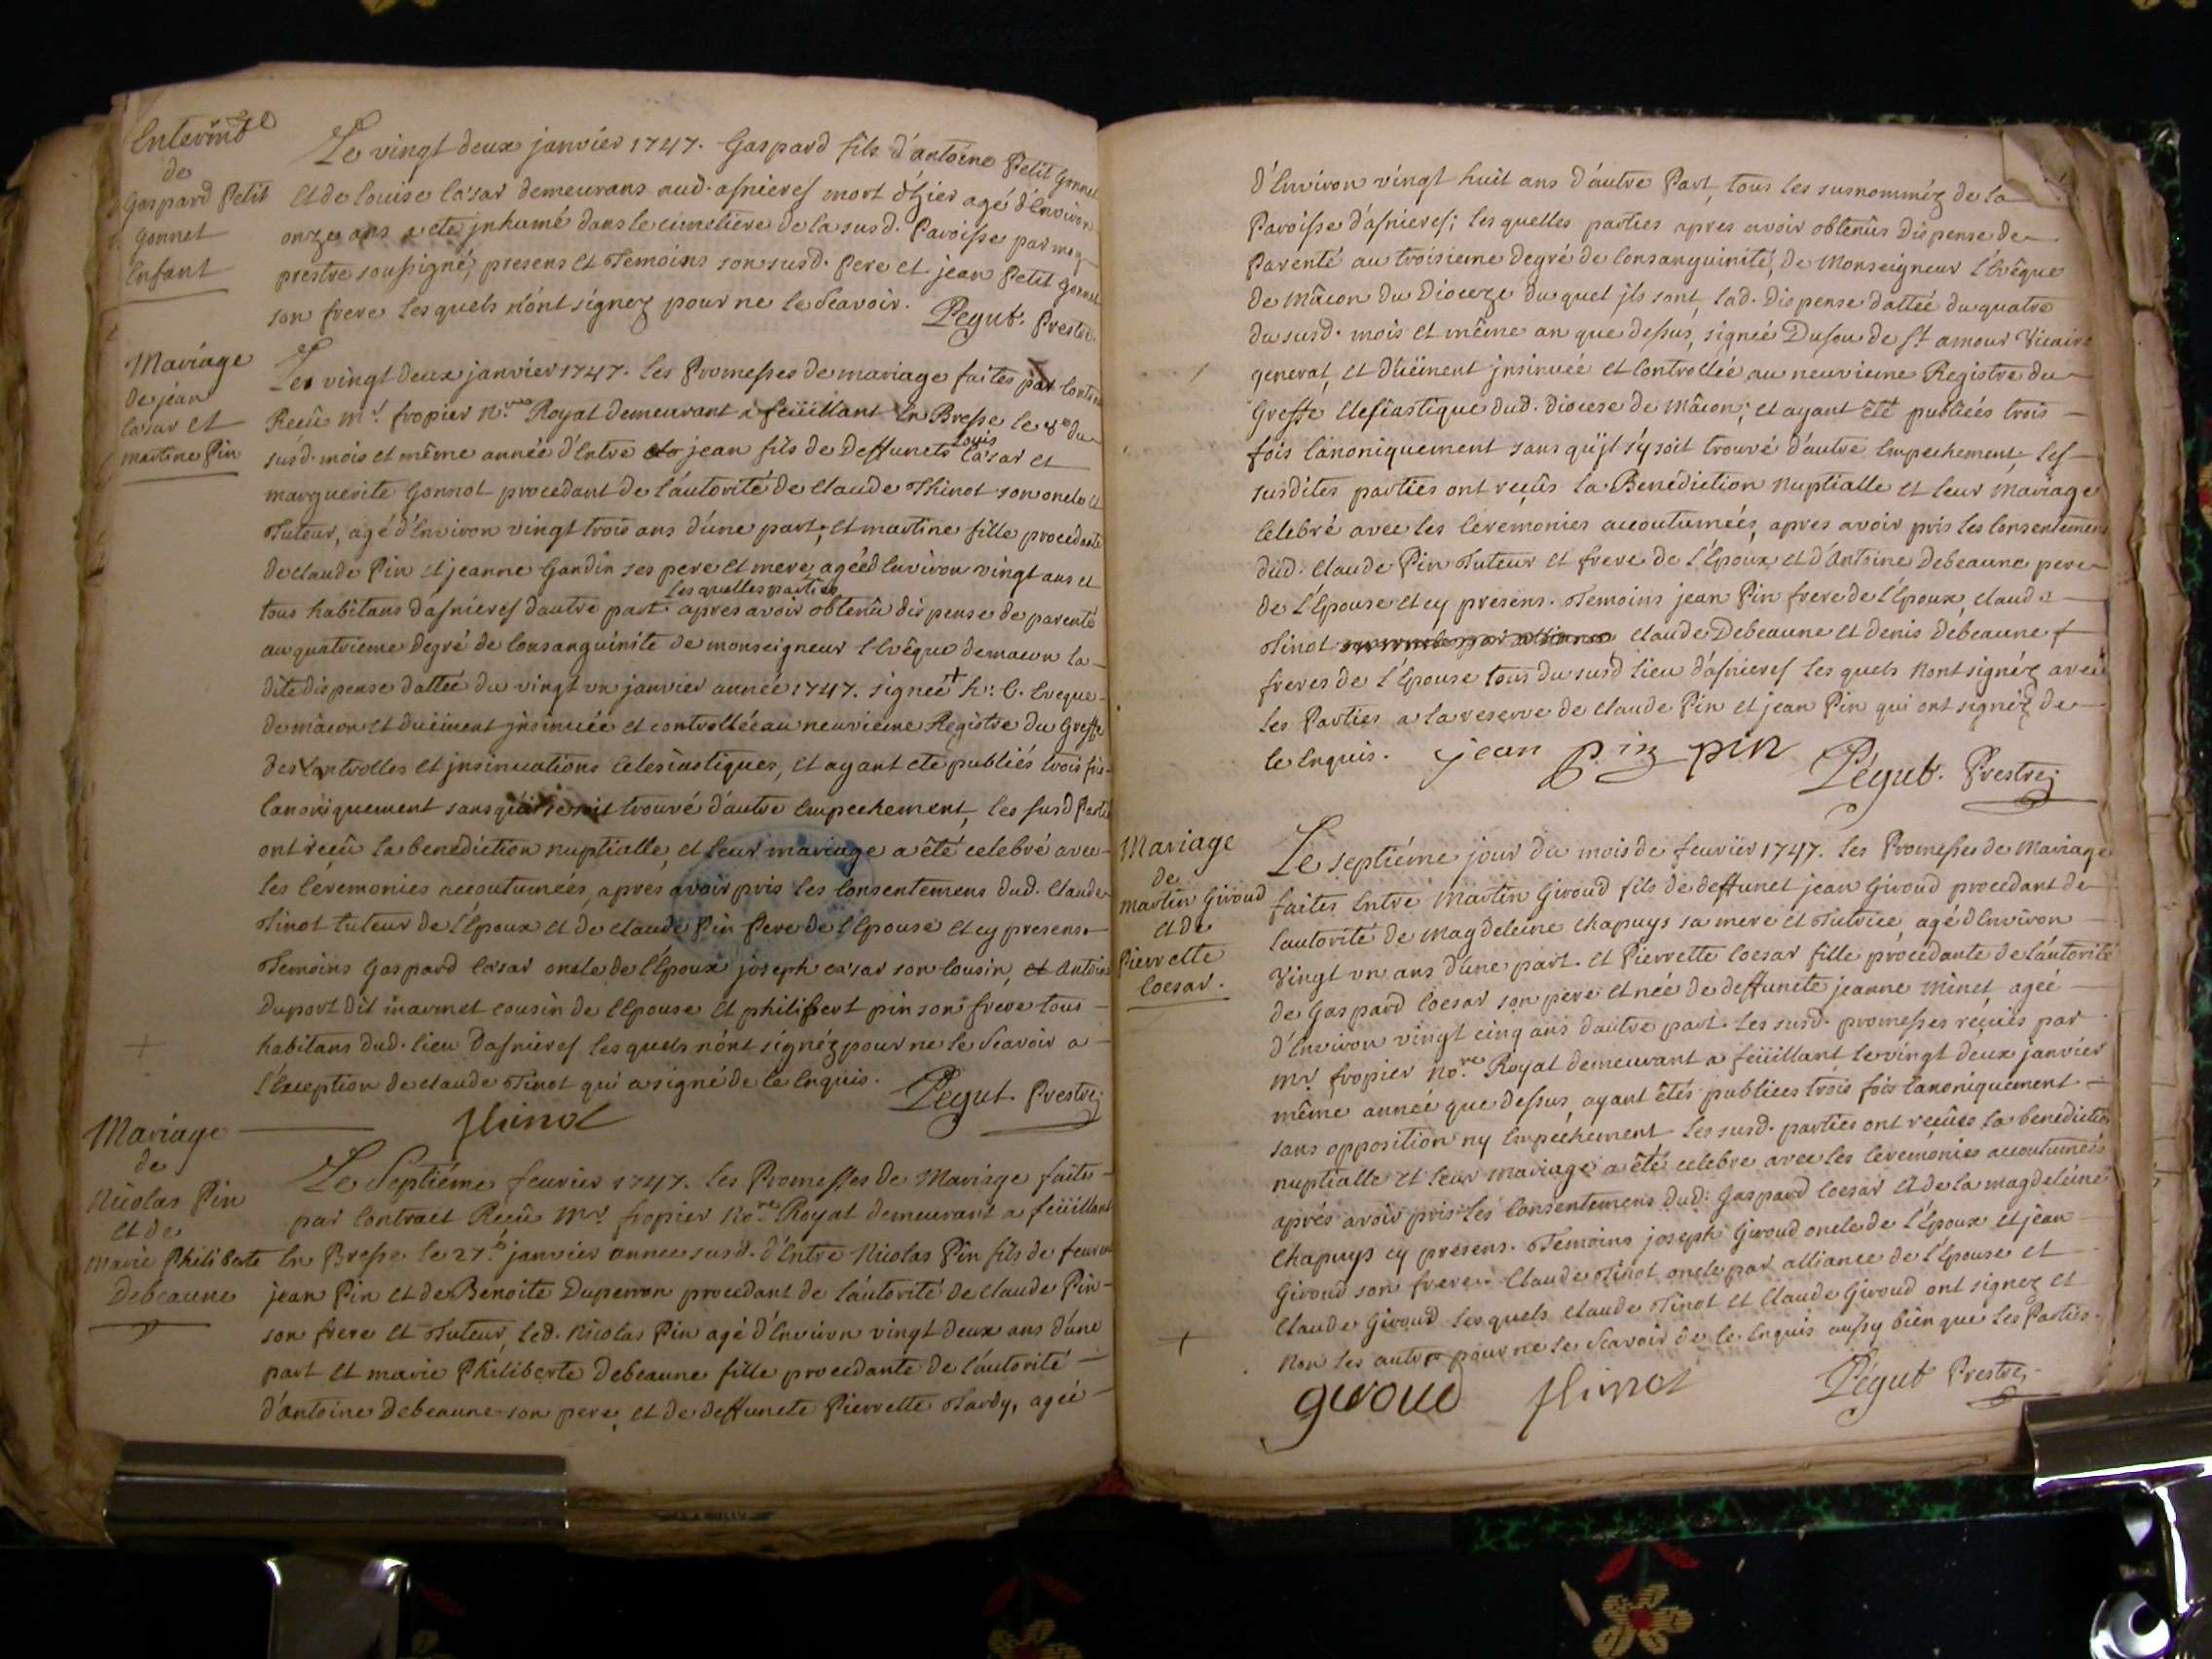 Enterrmt
de
Gaspard Petit
Gonnet
Enfant
Le vingt deux janvier 1747. Gaspard fils d'antoine Petit Gonnet
et de louise cæsar demeurans aud. asnieres mort d'hier agé d'Environ
onze ans a eté jnhumé dans le cimetiere de la susd. Paroisse par moy
prestre soussigné, presens et Temoins son susd. Pere et jean Petit gonnet
son frere lesquels n'ont signez pour ne le Scavoir. Pegut. Prestre.
Mariage
de jean
cæsar et
martine Pin
Le vingt deux janvier 1747. les Promesses de mariage faites par Contrat
Reçû mr. fropier Nre Royal demeurant a feüillant En Bresse le 8e du
susd. mois et même année d'Entre jean fils de Deffunets Louis cæsar et
marguerite Gonnot procedant de l'autorité de Claude Thinot son oncle et
Tuteur, agé d'Environ vingt trois ans d'une part; et martine fille procedante
de claude Pin et jeanne Gandin ses pere et mere, agéé d'Environ vingt ans et
tous habitans d'asnieres d'autre part. les quelles parties apres avoir obtenû dispense de parenté
au quatrieme degré de Consanguinite de monseigneur l'Evêque de macon la
dite dispense dattéé du vingt un janvier année 1747. signeé † h: C. Eveque
de mâcon et düement jnsinuéé et controlléé au neuvieme Registre du Greffe
des Controlles et jnsinuations Eclesiastiques, et ayant eté publiés trois fois
Canoniquement sans qu'il se soit trouvé d'autre Empechement, les susd Parties
ont reçû la benediction nuptialle, et leur mariage a été celebré avec
les Céremonies accoutuméés, aprés avoir pris les Consentemens dud. Claude
Tinot tuteur de l'Epoux et de claude Pin Pere de l'Epouse et cy presens.
Temoins Gaspard cæsar oncle de l'Epoux joseph cæsar son Cousin, et Antoine
Duport dit marmet cousin de l'Epouse et philibert pin son frere tous
habitans dud. lieu D'asnieres lesquels n'ont signéz pour ne le Scavoir a
l'Exception de claude Tinot qui a signé de ce Enquis. Pegut Prestre
thinot
Mariage
de
Nicolas Pin
et de
Marie Philiberte
Debeaune
Le Septiéme feuvrier 1747. les Promesses de Mariage faites
par Contrait Reçû Mr. fropier No.re Royal demeurant a feüillant
En Bresse le 27e janvier annee susd. d'Entre Nicolas Pin fils de
jean Pin et de Benoite Duperron procedant de l'autorité de claude Pin
son frere et Tuteur, led. Nicolas Pin agé d'Environ vingt deux ans d'une
part et marie Philiberte Debeaune fille procedante de l'autorité
d'Antoine Debeaune son pere, et de deffuncte Pierrette Tardy, agéé
d'Environ vingt huit ans d'autre Part, tous les susnomméz de la
Paroisse d'asnieres; lesquelles parties apres avoir obtenûs dispense de
Parenté au troisieme degré de Consanguinité, de Monseigneur l'Evêque
de Mâcon du Dioceze duquel jls sont, lad. dispense dattéé du quatre
du susd. mois et même an que dessus, signéé Dufou de St amour Vicaire
general, et düément jnsinuéé et Controlléé au neuvieme Registre du
Greffe Eclesiastique dud. Diocese de Mâcon; et ayant êté publiéés trois
fois Canoniquement sans qu'jl s'y soit trouvé d'autre Empechement les
susdites parties ont reçûs la Benédiction Nuptialle et leur Mariage
Celebré avec les Céremonies accoutuméés, apres avoir pris les Consentemens
dud. Claude Pin Tuteur et frere de l'Epoux et d'Antoine Debeaune pere
de l'Epouse et cy presens. Temoins jean Pin frere de l'Epoux, claude
Tinot claude Debeaune et denis debeaune
freres de l'Epouse tous du susd lieu d'asnieres lesquels n'ont signéz avec
les Parties a la reserve de claude Pin et jean Pin qui ont signéz de
ce Enquis. jean pin pin Pégut. Prestre
Mariage
de
Martin Giroud
et de
Pierrette
Coesar.
Le septiéme jour du mois de feuvrier 1747. les Promesses de Mariage
faites Entre Martin Giroud fils de deffunct jean Giroud procedant de
l'autorité de Magdeleine Chapuys sa mere et Tutrice, agé d'Environ
Vingt un ans d'une part. et Pierrette Coesar fille procedante de l'autorité
de Gaspard Coesar son pere et néé de deffuncte jeanne Minet, agéé
d'Environ vingt cinq ans d'autre part. les susd. promesses reçuës par
Mr. fropier No.re Royal demeurant a feüillant le vingt deux janvier
même année que dessus, ayant êtés publiees trois fois Canoniquement
sans opposition ny Empéchement les susd. parties ont reçûes la benediction
nuptialle et leur mariage a êté celebre avec les Céremonies accoutumeés
aprés avoir pris les Consentemens dud: Gaspard Coesar et de la magdeleine
Chapuys cy presens. Temoins joseph Giroud oncle de l'Epoux et jean
Giroud son frere. Claude Tinot oncle par alliance de l'Epouse et
Claude Giroud lesquels claude Tinot et Claude Giroud ont signez et
Non les autres pour ne le Scavoir de ce Enquis aussy bien que les Parties.
giroud thinot Pégut Prestre